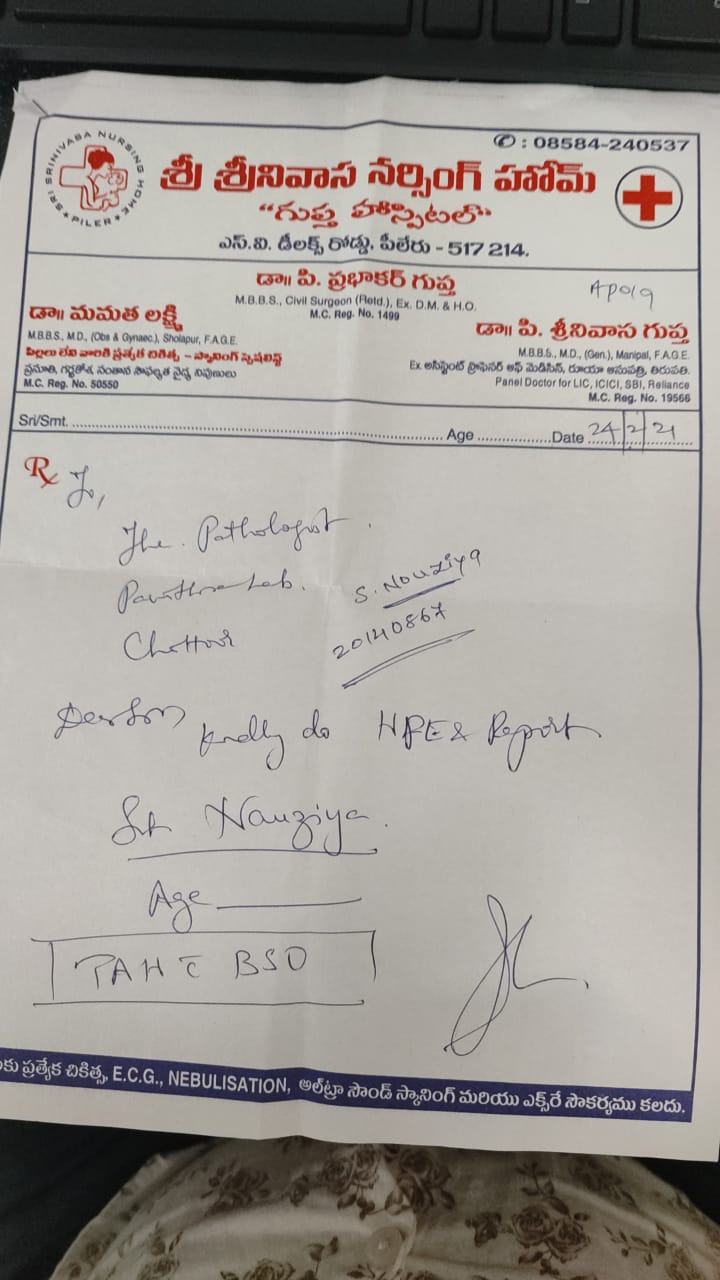 SRI SRINIVASA NURSING HOME
★ PILER ★
✆ : 08584-240537
శ్రీ శ్రీనివాస నర్సింగ్ హోమ్
"గుప్త హాస్పిటల్"
ఎస్.వి. డీలక్స్ రోడ్డు, పీలేరు - 517 214.
డా॥ పి. ప్రభాకర్ గుప్త
M.B.B.S., Civil Surgeon (Retd.), Ex. D.M. & H.O.
M.C. Reg. No. 1499
AP019
డా॥ మమత లక్ష్మి
M.B.B.S., M.D., (Obs & Gynaec.), Sholapur, F.A.G.E.
పిల్లలు లేని వారికి ప్రత్యేక చికిత్స - స్కానింగ్ స్పెషలిస్ట్
ప్రసూతి, గర్భకోశ, సంతాన సాఫల్యత వైద్య నిపుణులు
M.C. Reg. No. 50550
డా॥ పి. శ్రీనివాస గుప్త
M.B.B.S., M.D., (Gen.), Manipal, F.A.G.E.
Ex. అసిస్టెంట్ ప్రొఫెసర్ ఆఫ్ మెడిసిన్, రూయా ఆసుపత్రి, తిరుపతి.
Panel Doctor for LIC, ICICI, SBI, Reliance
M.C. Reg. No. 19566
Sri/Smt. ........ Age ........ Date 24/2/21
Rx To,
The Pathologist.
Lab.
S. Nouziya
20140867
Chittoor
kindly do HPE & Report
Nauziya.
Age
TAH C BSO
కు ప్రత్యేక చికిత్స, E.C.G., NEBULISATION, అల్ట్రా సౌండ్ స్కానింగ్ మరియు ఎక్స్‌రే సౌకర్యము కలదు.